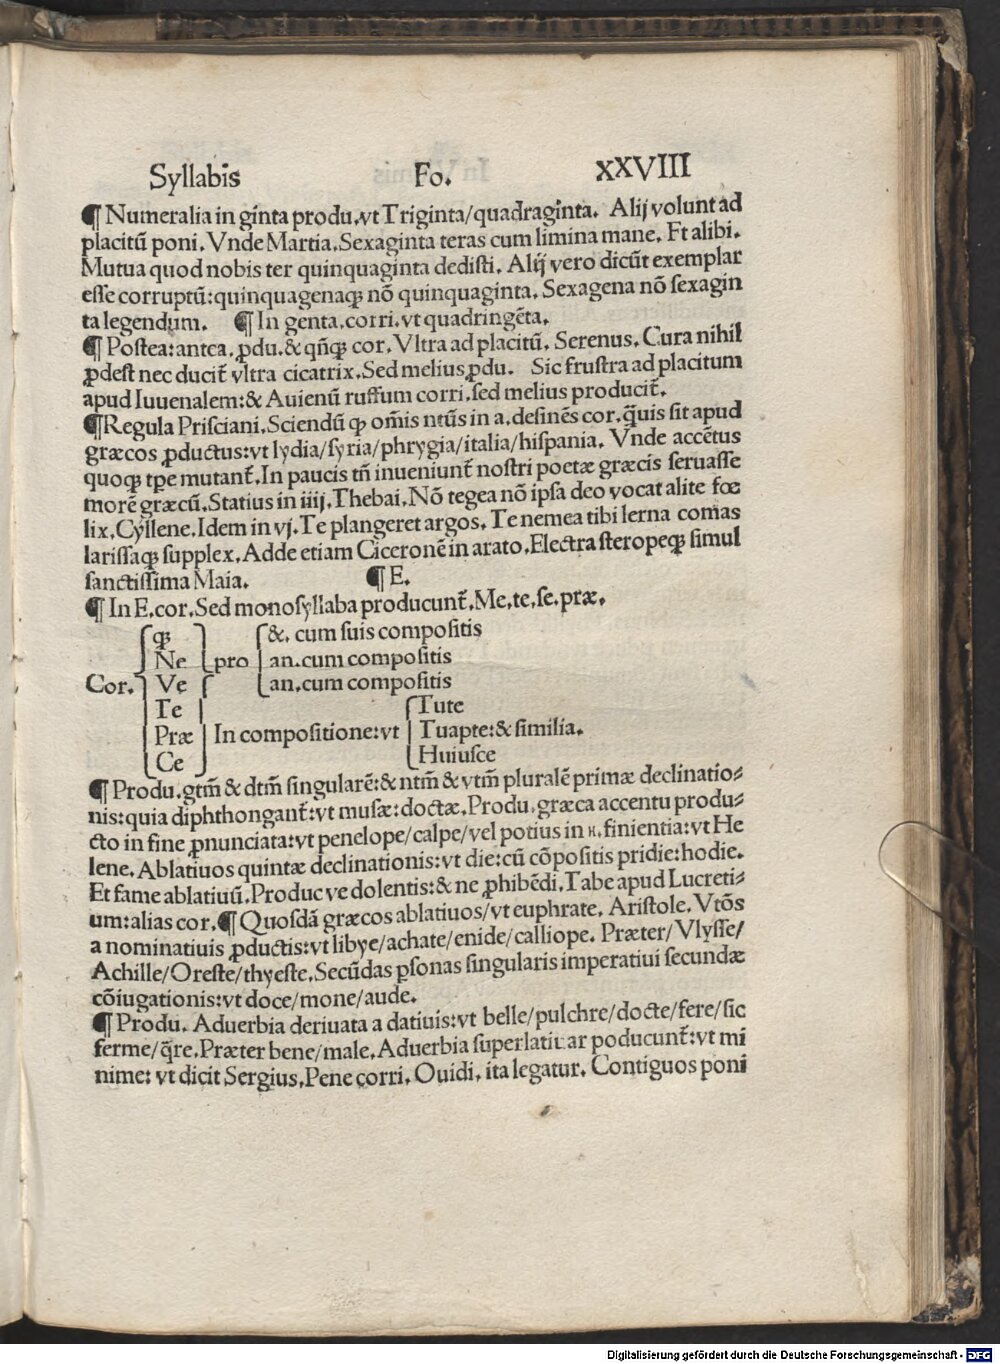 Syllabis Fo. XXVIII
¶ Numeralia in ginta produ.vt Triginta/quadraginta. Alij volunt ad
placitū poni.Vnde Martia.Sexaginta teras cum limina mane. Et alibi.
Mutua quod nobis ter quinquaginta dedisti. Alij vero dicūt exemplar
esse corruptū:quinquagenaqȝ nō quinquaginta. Sexagena nō sexagin
ta legendum. ¶ In genta.corri.vt quadringēta.
¶ Postea:antea.ꝓdu.&qñqȝ cor.Vltra ad placitū. Serenus.Cura nihil
ꝓdest nec ducit̄ vltra cicatrix.Sed melius ꝓdu. Sic frustra ad placitum
apud Iuuenalem:& Auienū ruffum corri.sed melius producit̄.
¶Regula Prisciani.Sciendū ꝙ om̄is ntūs in a.desinēs cor.q̄uis sit apud
græcos ꝓductus:vt lydia/syria/phrygia/italia/hispania. Vnde accētus
quoqȝ tꝑe mutant̄.In paucis tñ inueniunt̄ nostri poetæ græcis seruasse
morē græcū.Statius in iiij.Thebai.Nō tegea nō ipsa deo vocat alite fœ
lix.Cyllene.Idem in vj.Te plangeret argos. Te nemea tibi lerna comas
larissaqȝ supplex.Adde etiam Ciceronē in arato.Electra steropeqȝ simul
sanctissima Maia. ¶ E.
¶ In E.cor.Sed monosyllaba producunt̄.Me.te.se.præ.
qȝ &. cum suis compositis
Ne pro an.cum compositis
Cor. Ve an.cum compositis
Te Tute
Præ In compositione:vt Tuapte:& similia.
Ce Huiusce
¶ Produ.gtm̄ & dtm̄ singularē:& ntm̄ & vtm̄ pluralē primæ declinatio⸗
nis:quia diphthongant̄:vt musæ:doctæ.Produ.græca accentu produ⸗
cto in fine ꝓnunciata:vt penelope/calpe/vel potius in н.finientia:vt He
lene. Ablatiuos quintæ declinationis:vt die:cū cōpositis pridie:hodie.
Et fame ablatiuū.Produc ve dolentis:& ne ꝓhibēdi.Tabe apud Lucreti⸗
um:alias cor.¶ Quosdā græcos ablatiuos/vt euphrate. Aristole.Vtōs
a nominatiuis ꝓductis:vt libye/achate/enide/calliope. Præter/Vlysse/
Achille/Oreste/thyeste.Secūdas ꝑsonas singularis imperatiui secundæ
cōiugationis:vt doce/mone/aude.
¶ Produ. Aduerbia deriuata a datiuis:vt belle/pulchre/docte/fere/sic
ferme/q̄re.Præter bene/male.Aduerbia superlatiuar poducunt̄:vt mi
nime: vt dicit Sergius.Pene corri. Ouidi. ita legatur. Contiguos poni
Digitalisierung gefördert durch die Deutsche Forschungsgemeinschaft - DFG